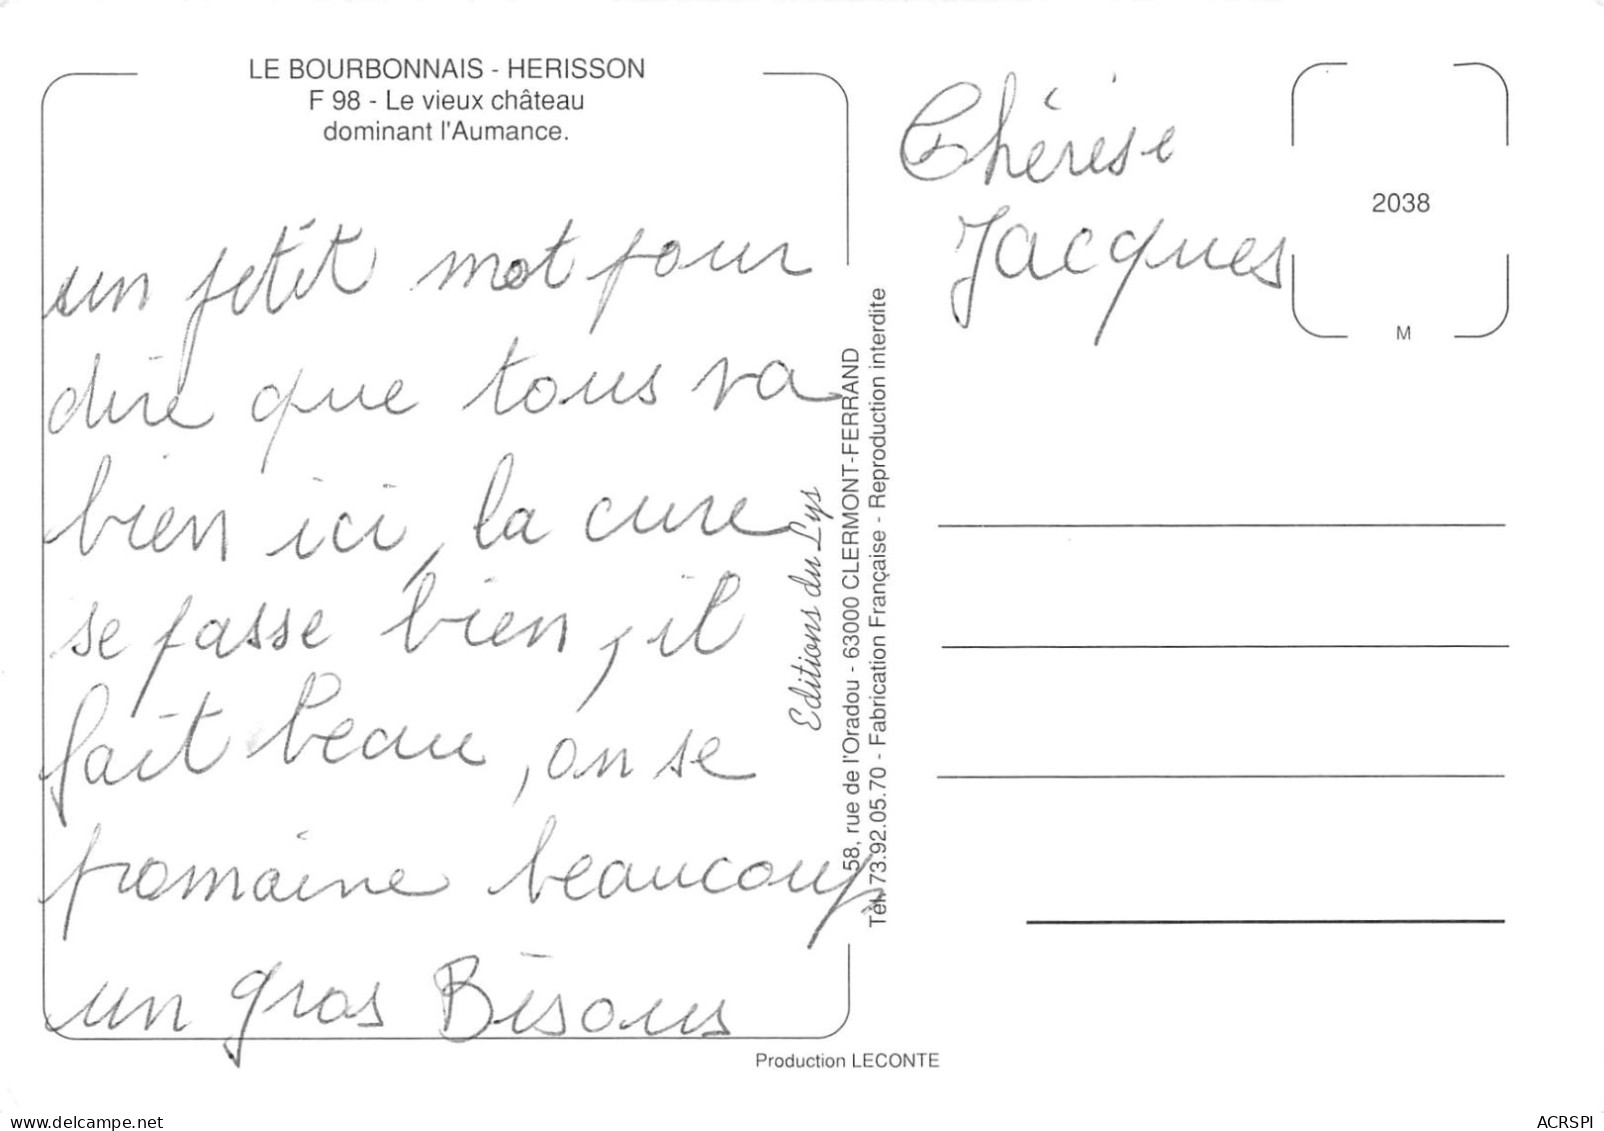 LE BOURBONNAIS - HERISSON
F 98 - Le vieux château
dominant l'Aumance.
un petit mot pour
dire que tous va
bien ici, la cure
se passe bien, il
fait beau, on se
promaine beaucoup
un gros Bisous
Thérèse
Jacques
2038
M
Editions du Lys
58, rue de l'Oradou - 63000 CLERMONT-FERRAND
Tél. 73.92.05.70 - Fabrication Française - Reproduction interdite
Production LECONTE
www.delcampe.net
ACRSPI